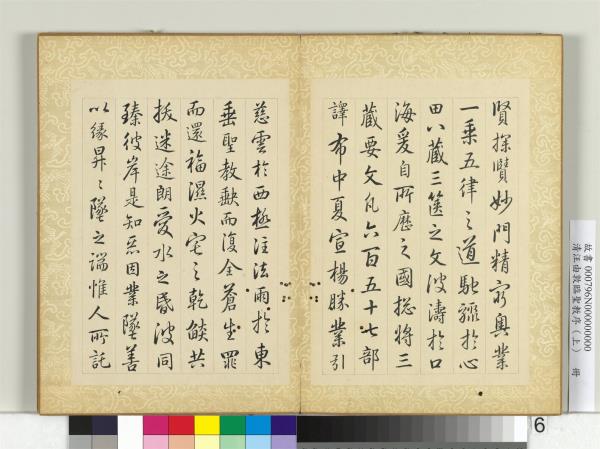 賢探賾妙門精窮奧業
一乘五律之道馳驟於心
田八藏三篋之文波濤於口
海爰自所歷之國捴將三
藏要文凡六百五十七部
譯布中夏宣楊勝業引
慈雲於西極注法雨於東
垂聖教缺而復全蒼生罪
而還福濕火宅之乾燄共
拔迷途朗愛水之昏波同
臻彼岸是知惡因業墜善
以緣昇昇墜之端惟人所託
故書 000796N000000000
清汪由敦臨聖教序（上） 冊
6